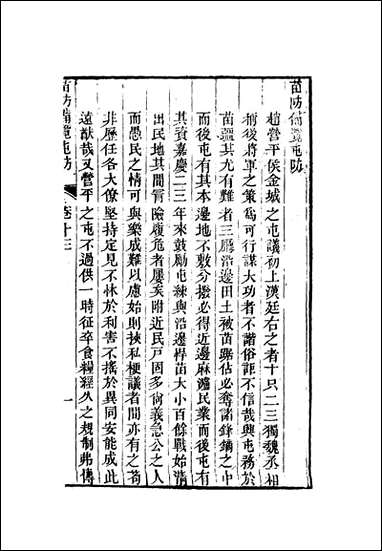 苗防備覽屯防
趙營平侯金城之屯議初上漢廷右之者十只二三獨魏丞相
稱後將軍之策爲可行謀大功者不諧俗詎不信哉興屯務於
苗疆其尤有難者三廳沿邊田土被苗騷佔必奪諸鋒鏑之中
而後屯有其本邊地不敷分撥必得近邊麻瀘民業而後屯有
其資嘉慶二三年來鼓勵屯練與沿邊桿苗大小百餘戰始清
出民地其間冒險履危者屢矣附近民戸固多尙義急公之人
而愚民之情可與樂成難以慮始則挾私梗議者間亦有之苟
非歷任各大僚堅持定見不怵於利害不搖於異同安能成此
遠猷哉又營平之屯不過供一時征卒食糧經久之規制弗傳
苗防備覽屯防
卷十三
一